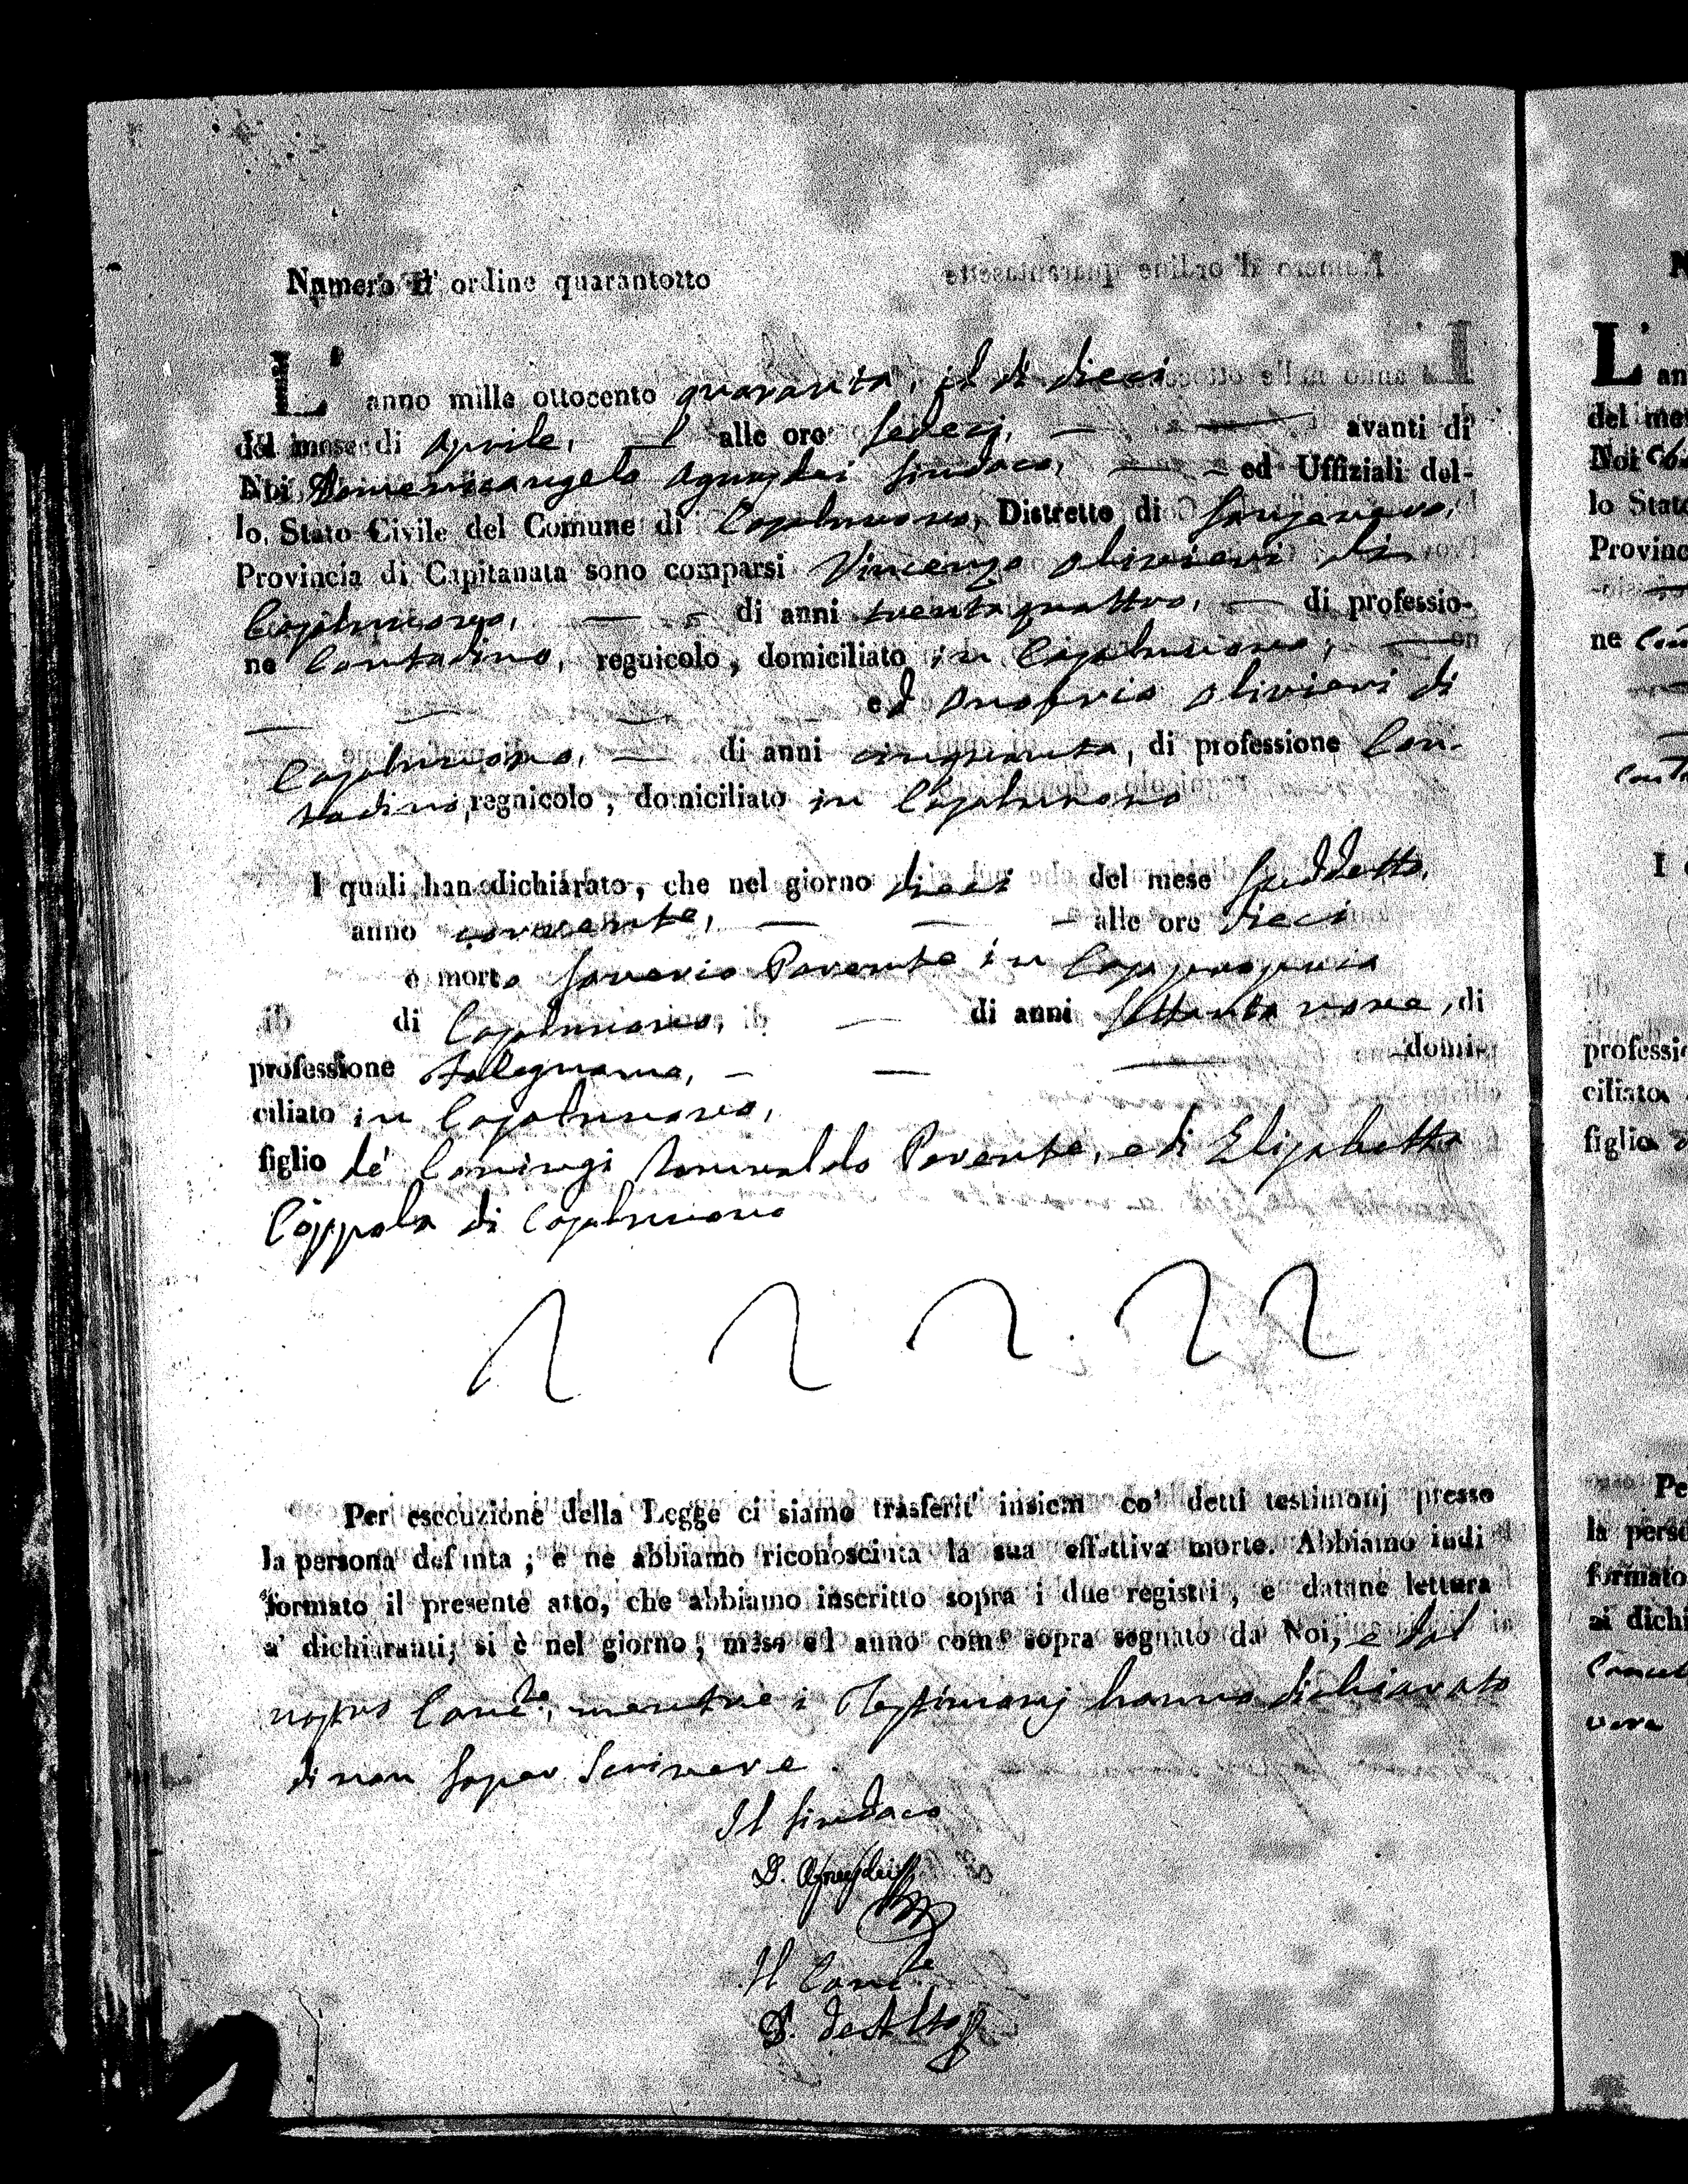 Numero d' ordine quarantotto
L' anno mille ottocento quaranta, il dì dieci
del mese di Aprile, alle ore sedeci, avanti di
Noi Domenicangelo Agnusdei Sindaco, ed Uffiziali del-
lo Stato Civile del Comune di Casalnuovo, Distretto di Sansevero,
Provincia di Capitanata sono comparsi Vincenzo Olivieri di
Casalnuovo, di anni trentaquattro, di professio-
ne Contadino, regnicolo, domiciliato in Casalnuovo,
ed Onofrio Olivieri di
Casalnuovo, di anni cinquanta, di professione Con-
tadino, regnicolo, domiciliato in Casalnuovo
I quali han dichiarato, che nel giorno dieci del mese suddetto,
anno corrente, alle ore dieci
è morto Saverio Parente in Casa propria
di Casalnuovo, di anni settanta nove, di
professione Falegname, domi-
ciliato in Casalnuovo,
figlio de' Coniugi Romualdo Parente, e di Elisabetta
Coppola di Casalnuovo
Per esecuzione della Legge ci siamo trasferit' insiem co' detti testimonj presso
la persona defunta; e ne abbiamo riconosciuta la sua effettiva morte. Abbiamo indi
formato il presente atto, che abbiamo inscritto sopra i due registri, e datane lettura
a' dichiaranti; si è nel giorno, mese ed anno come sopra segnato da Noi, e dal
nostro Canc.re, mentre i Testimonj hanno dichiarato
di non saper scrivere.
Il Sindaco
D. Agnusdei
Il Canc.re
de Alto